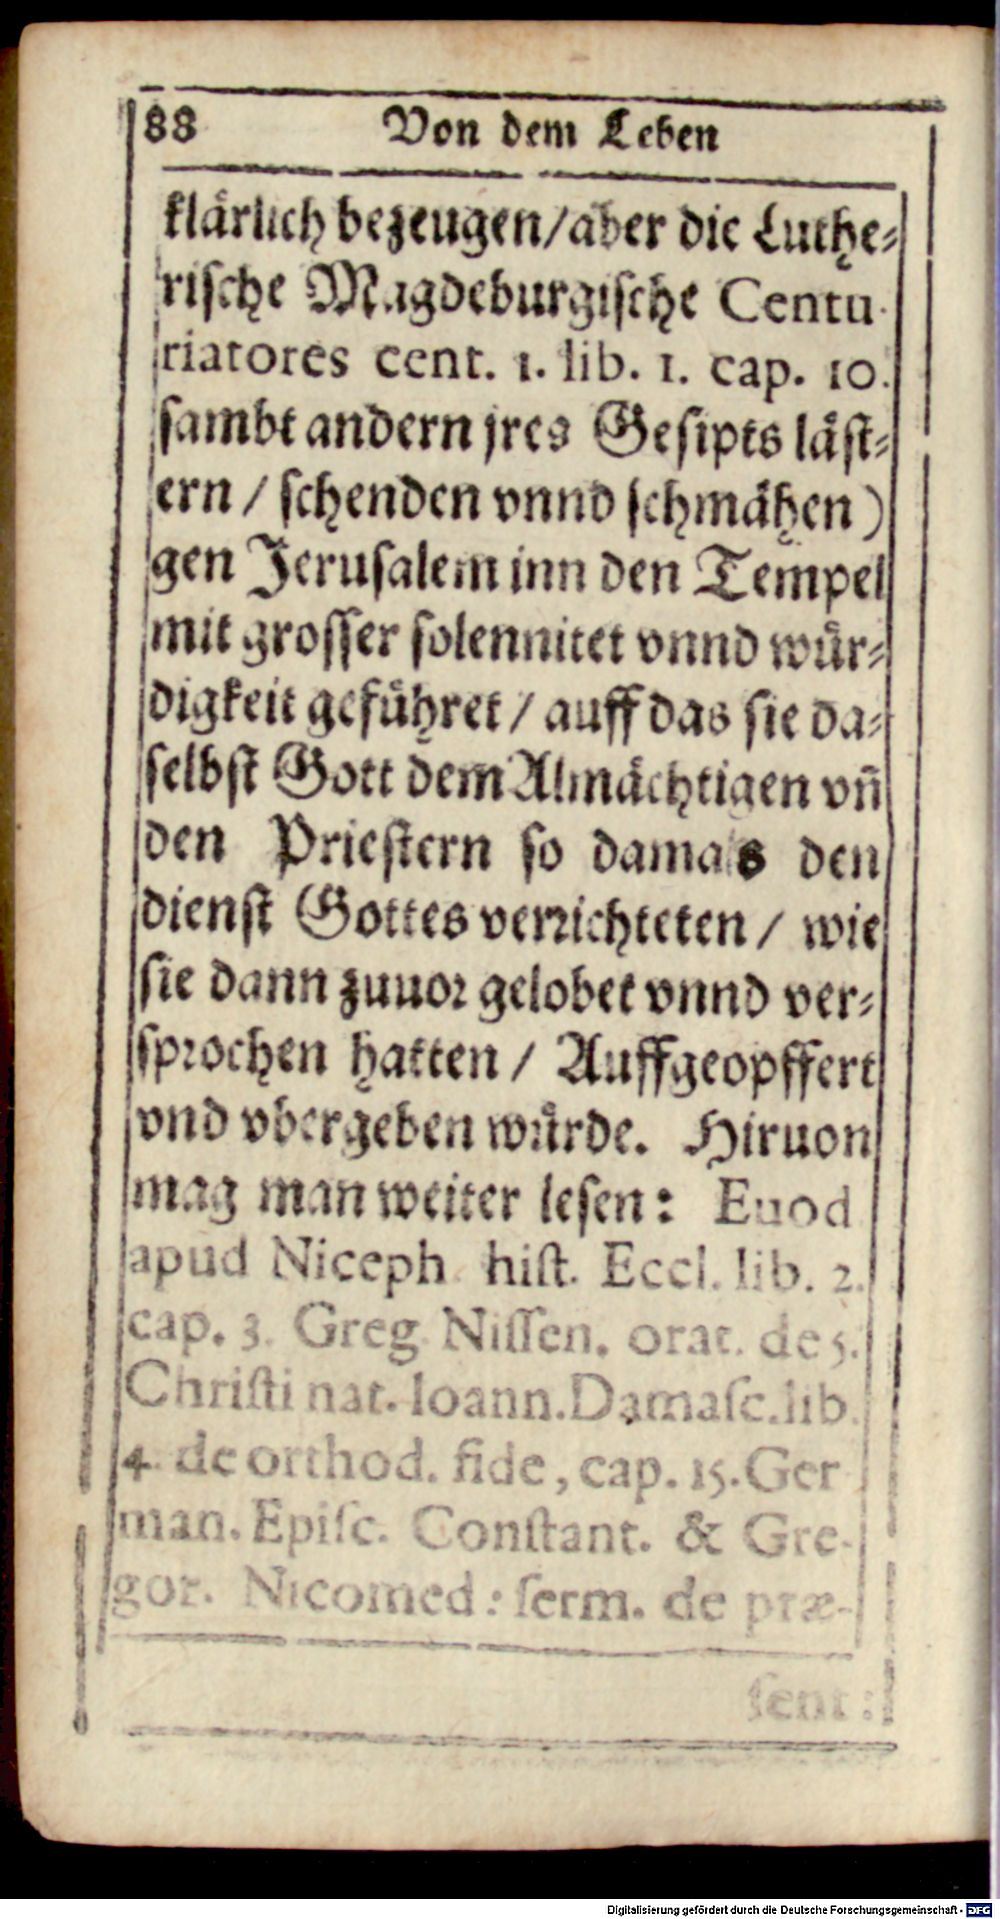 88 Von dem Leben
klärlich bezeugen/aber die Luthe⸗
rische Magdeburgische Centu-
riatores cent. 1. lib. 1. cap. 10.
sambt andern jres Gesipts läst⸗
ern / schenden vnnd schmähen)
gen Jerusalem inn den Tempel
mit grosser solennitet vnnd wür⸗
digkeit geführet / auff das sie da⸗
selbst Gott dem Almächtigen vn̄
den Priestern so damals den
dienst Gottes verrichteten / wie
sie dann zuuor gelobet vnnd ver⸗
sprochen hatten / Auffgeopffert
vnd vbergeben würde. Hiruon
mag man weiter lesen: Euod
apud Niceph. hiſt. Eccl. lib. 2.
cap. 3. Greg. Niſſen. orat. de S.
Chriſti nat. Ioann. Damaſc. lib.
4. de orthod. fide, cap. 15. Ger
man. Epiſc. Conſtant. & Gre-
gor. Nicomed: ſerm. de præ-
ſent:
Digitalisierung gefördert durch die Deutsche Forschungsgemeinschaft - DFG